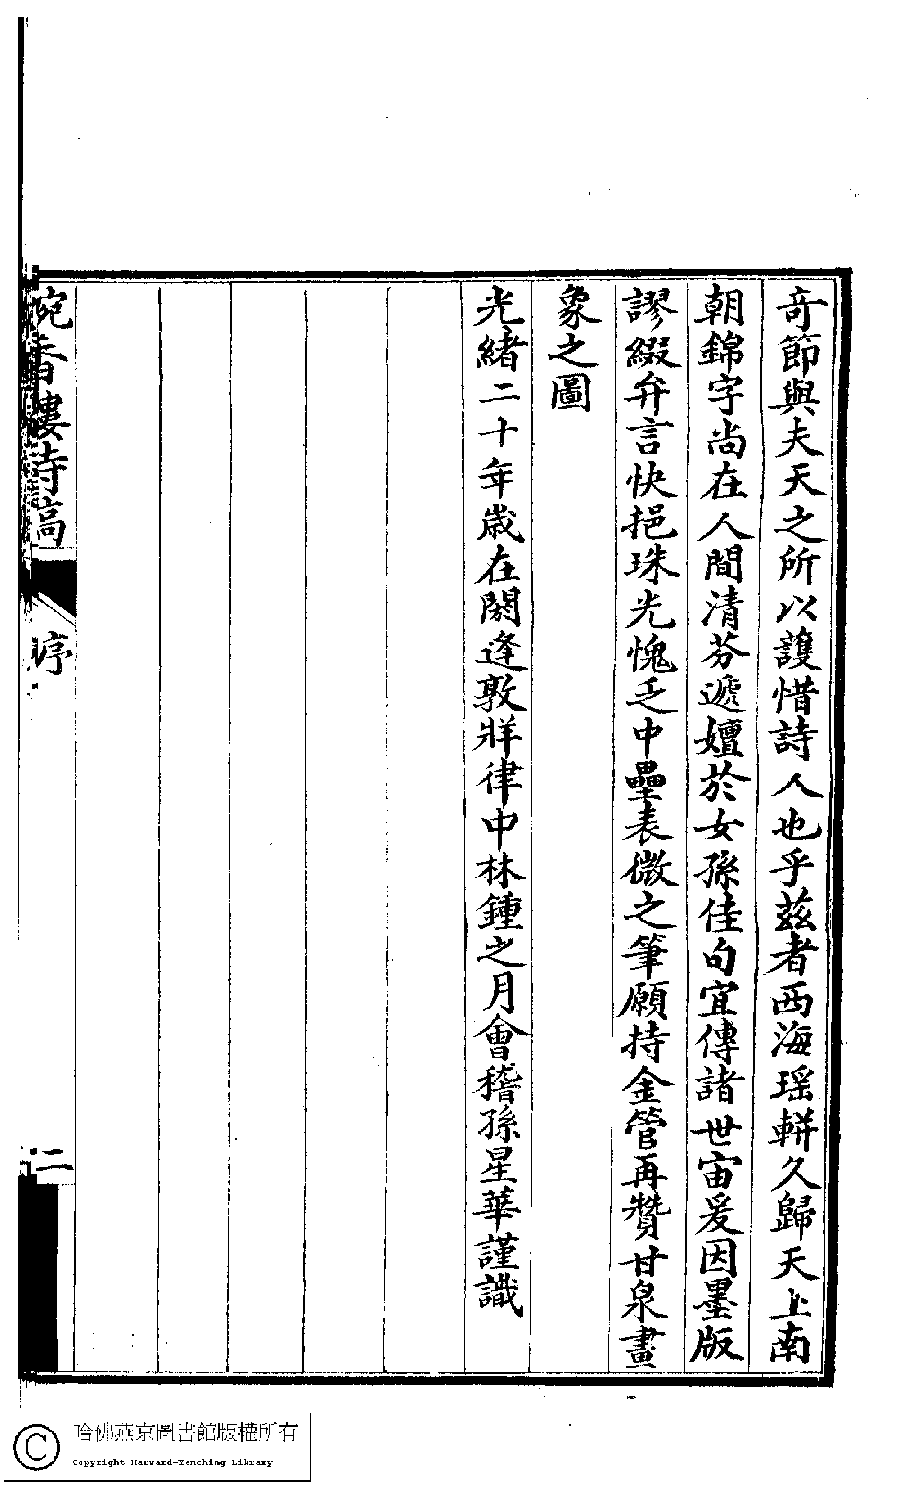 奇節與夫天之所以護惜詩人也乎茲者西海瑶軿久歸天上南
朝錦字尚在人間清芬遞嬗於女孫佳句宜傳諸世宙爰因墨版
謬綴弁言快挹珠光愧乏中壘表微之筆願持金管再贊甘泉畫
象之圖
光緒二十年歲在閼逢敦牂律中林鍾之月會稽孫星華謹識
香樓詩稿
序
二
哈佛燕京圖書館版權所有
Copyright Harvard-Yenching Library